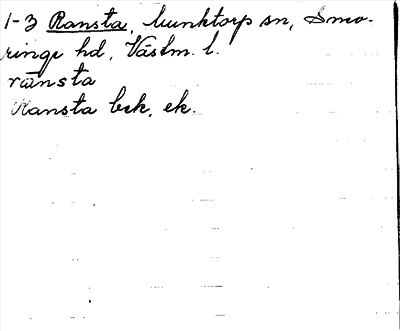 1-3 Ransta, Munktorp sn, Sno-
ringe hd, Västm. l.
ränsta
Ransta bek, ek.